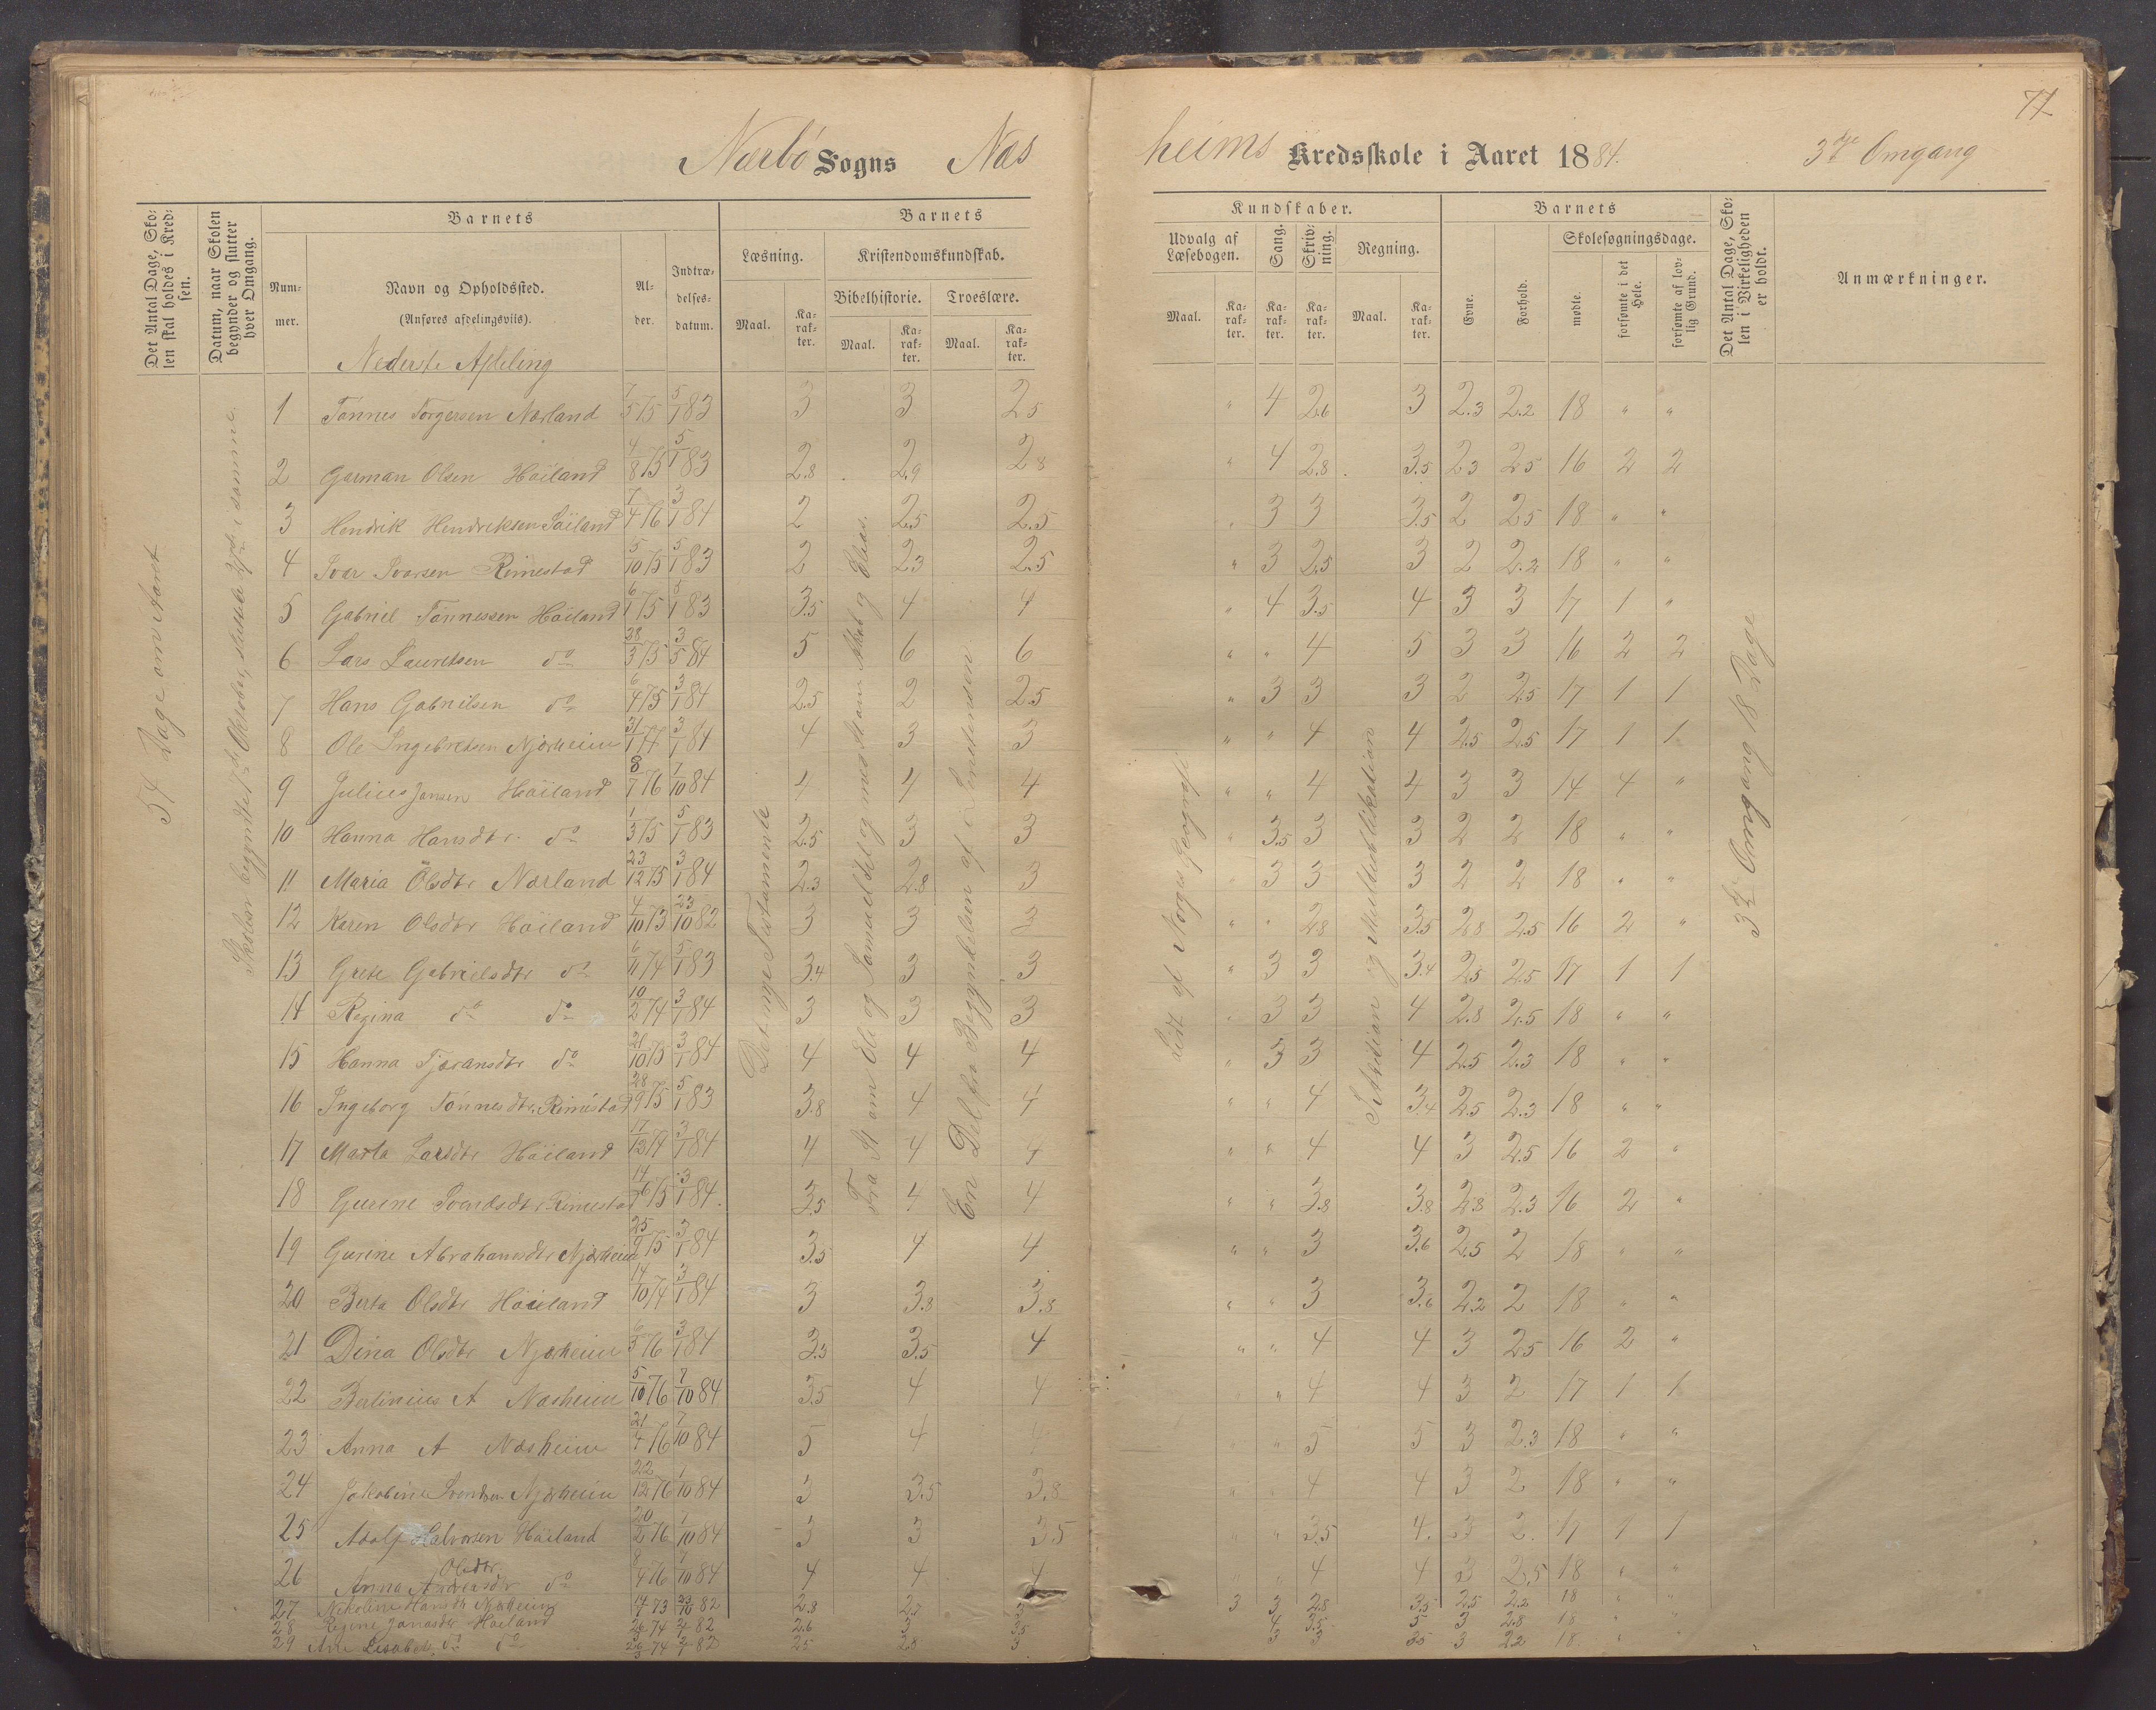 77
Nærbö Sogns Næsheims Kredsskole i Aaret 1884. 3die Omgang
Det Antal Dage, Skolen skal holdes i Kredsen.
Datum, naar Skolen begynder og slutter hver Omgang.
Barnets
Nummer.
Navn og Opholdssted.
(Anføres afdelingsviis).
Alder.
Indtrædelsesdatum.
Barnets Kundskaber.
Læsning.
Maal. Karakter.
Kristendomskundskab.
Bibelhistorie. Troeslære.
Maal. Karakter. Maal. Karakter.
Udvalg af Læsebogen.
Maal. Karakter.
Sang. Karakter.
Skrivning. Karakter.
Regning.
Maal. Karakter.
Barnets
Evne. Forhold.
Skolesøgningsdage.
mødte. forsømte i det Hele. forsømte af lovlig Grund.
Det Antal Dage, Skolen i Virkeligheden er holdt.
Anmærkninger.
Nederste Afdeling
54 Dage om Aaret
Det nye Testamente
3die Omgang 18 Dage
1 Tönnes Torgersen Nærland 7/5 75 5/1 83 3 3 2.5 " 4 2.6 3 2.3 2.2 18 " "
2 Garman Olsen Höiland 4/8 75 5/1 83 2.8 2.9 2.8 " 4 2.8 3.5 2.3 2.5 16 2 2
3 Hendrik Hendriksen Söiland 7/4 76 3/1 84 2 2.5 2.5 " 3 3 3.5 2 2.5 18 " "
4 Ivar Ivarsen Rimestad 5/10 75 5/1 83 2 2.3 2.5 " 3 2.5 3 2 2.2 18 " "
5 Gabriel Tönnessen Höiland 6/1 75 5/1 83 3.5 4 4 " 4 3.5 4 3 3 17 1 "
6 Lars Lauritsen do 28/3 75 3/5 84 5 6 6 " " 4 5 3 3 16 2 2
7 Hans Gabrielsen do 6/4 75 3/1 84 2.5 2 2.5 " 3 3 3 2 2.5 17 1 1
8 Ole Ingebretsen Njærheim 31/1 77 3/1 84 4 3 3 " " 4 4 2.5 2.5 17 1 1
9 Julius Jansen Höiland 8/7 76 7/10 84 4 4 4 " " 4 4 3 3 14 4 "
10 Hanna Hansdtr do 1/3 75 5/1 83 2.5 3 3 " 3.5 3 3 2 2 18 " "
11 Maria Olsdtr Nærland 23/12 75 3/1 84 2.3 2.8 3 " 3 3 3 2 2 18 " "
12 Karen Olsdtr Höiland 4/10 73 23/10 82 3 3 3 " " 2.8 3.5 2.8 2.5 16 2 "
13 Grete Gabrielsdtr do 6/11 74 5/1 83 3.4 3 3 " 3 3 3.4 2.5 2.5 17 1 1
14 Regina do do 10/2 74 3/1 84 3 3 3 " 3 3 4 2.8 2.5 18 " "
15 Hanna Tjøransdtr do 21/10 75 3/1 84 4 4 4 " 3 3 4 2.5 2.3 18 " "
16 Ingeborg Tönnesdtr Rimestad 28/9 75 5/1 83 3.8 4 4 " " 4 3.4 2.5 2.3 18 " "
17 Marta Larsdtr Höiland 17/12 74 3/1 84 4 4 4 " " 4 4 3 2.5 16 2 "
18 Gurine Svendsdtr Rimestad 14/6 75 3/1 84. 3.5 4 4 " " 3.8 3.8 2.8 2.3 16 2 "
19 Gurine Abrahamsdtr Njærheim 25/9 75 3/1 84 3.5 4 4 " " 3 3.6 2.5 2 18 " "
20 Berta Olsdtr Höiland 14/10 74 3/1 84 3 3.8 3.8 " " 3 3.6 2.2 2 18 " "
21 Dina Olsdtr Njærheim 6/5 76 3/1 84 3.3 3.5 4 " " 4 4 3 2.5 16 2 "
22 Berlinius A Næsheim 5/10 76 7/10 84 3.5 4 4 " 4 4 3 2 17 1 1
23 Anna A Næsheim 21/4 76 7/10 84 5 4 4 " 5 5 3 2.3 18 " "
24 Jakobine Svendsen Njærheim 22/12 76 1/10 84 3 3.5 3.8 " 4 4 3 2 18 " "
25 Adolf Halvorsen Höiland 20/2 76 1/10 84 3 3 3.5 " " 3.5 4. 3 2. 17 1 1
26 Anna Andreasdtr Olsdtr do 8/4 76 7/10 84 4 4 4 " " 4 4 3 2.5 18 " "
27 Nikoline Hansdtr Njærheim 14/7 73 23/10 82 2.8 2.7 3 3 3 2.8 3.5 2.5 2.2 18 " "
28 Regine Janasdtr Höiland 74 82 2.6 3 3.5 4 3.5 5 3 2.8 18 "
29 Ane Lisabet do do 74 82 2.5 2.8 3 3 3 3.5 3 2.2 18 "